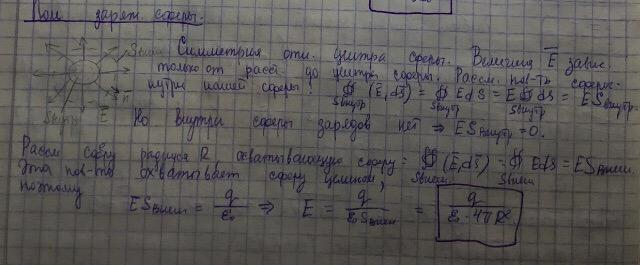 Поле заряж. сферы.
Симметрия отн. центра сферы. Величина E̅ завис.
только от расст. до центра сферы. Рассм. пов-ть сферы
внутри нашей сферы: ∯ (E̅,ds̅) = ∯ EdS = E ∯ ds = ESвнутр
Sвнутр Sвнутр Sвнутр
Но внутри сферы зарядов нет ⇒ ESвнутр = 0.
Sвнеш
n̅
E̅
Рассм сферу радиуса R охватывающую сферу: ∯ (E̅,ds̅) = ∯ Eds = ESвнеш.
Sвнеш Sвнеш
Эта пов-ть охватывает сферу целиком,
поэтому ESвнеш = q/ε₀ ⇒ E = q/(ε₀ Sвнеш) = q/(ε₀ · 4πR²)